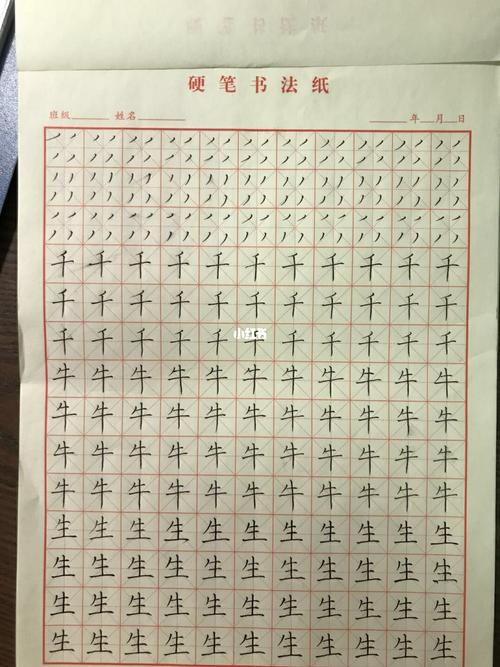 硬笔书法纸
班级 姓名 年 月 日
千千千千千千千千千千千
千千千千千千千千千千千
小红书
千千千千千千千千千千千
牛牛牛牛牛牛牛牛牛牛牛
牛牛牛牛牛牛牛牛牛牛牛
牛牛牛牛牛牛牛牛牛牛牛
牛牛牛牛牛牛牛牛牛牛牛
生生生生生生生生生生生
生生生生生生生生生生生
生生生生生生生生生生生
生生生生生生生生生生生